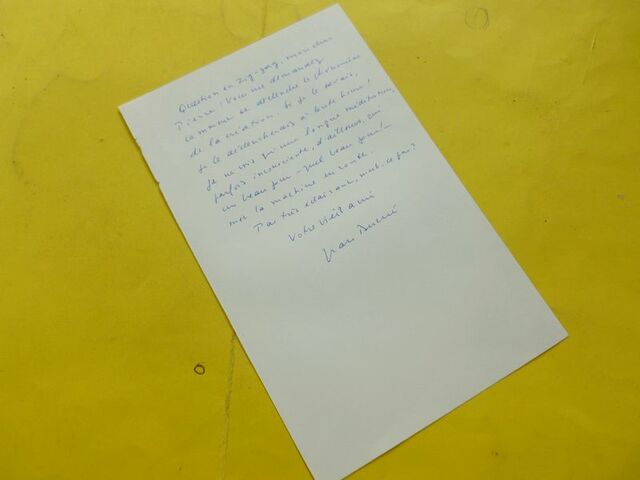 Question en zig-zag, mon cher
Pierre ! Vous me demandez
comment se déclenche le phénomène
de la création. Si je le savais,
je le déclencherais à toute heure !
Je ne vois qu'une longue méditation,
parfois inconsciente, d'ailleurs, qui
un beau jour - quel beau jour ! -
met la machine en route.
Pas très éclairant, n'est-ce pas ?
Votre vieil ami
Jean